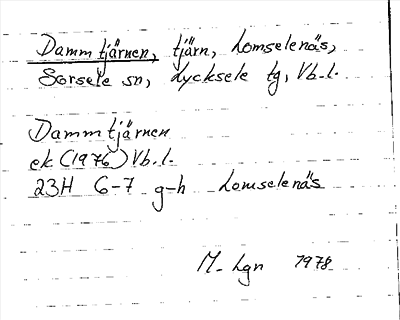 Dammtjärnen, tjärn, Lomselenäs,
Sorsele sn, Lycksele tg, Vb.l.
Dammtjärnen
ek (1976) Vb.l.
23H 6-7 g-h Lomselenäs
M. Lgn 1978